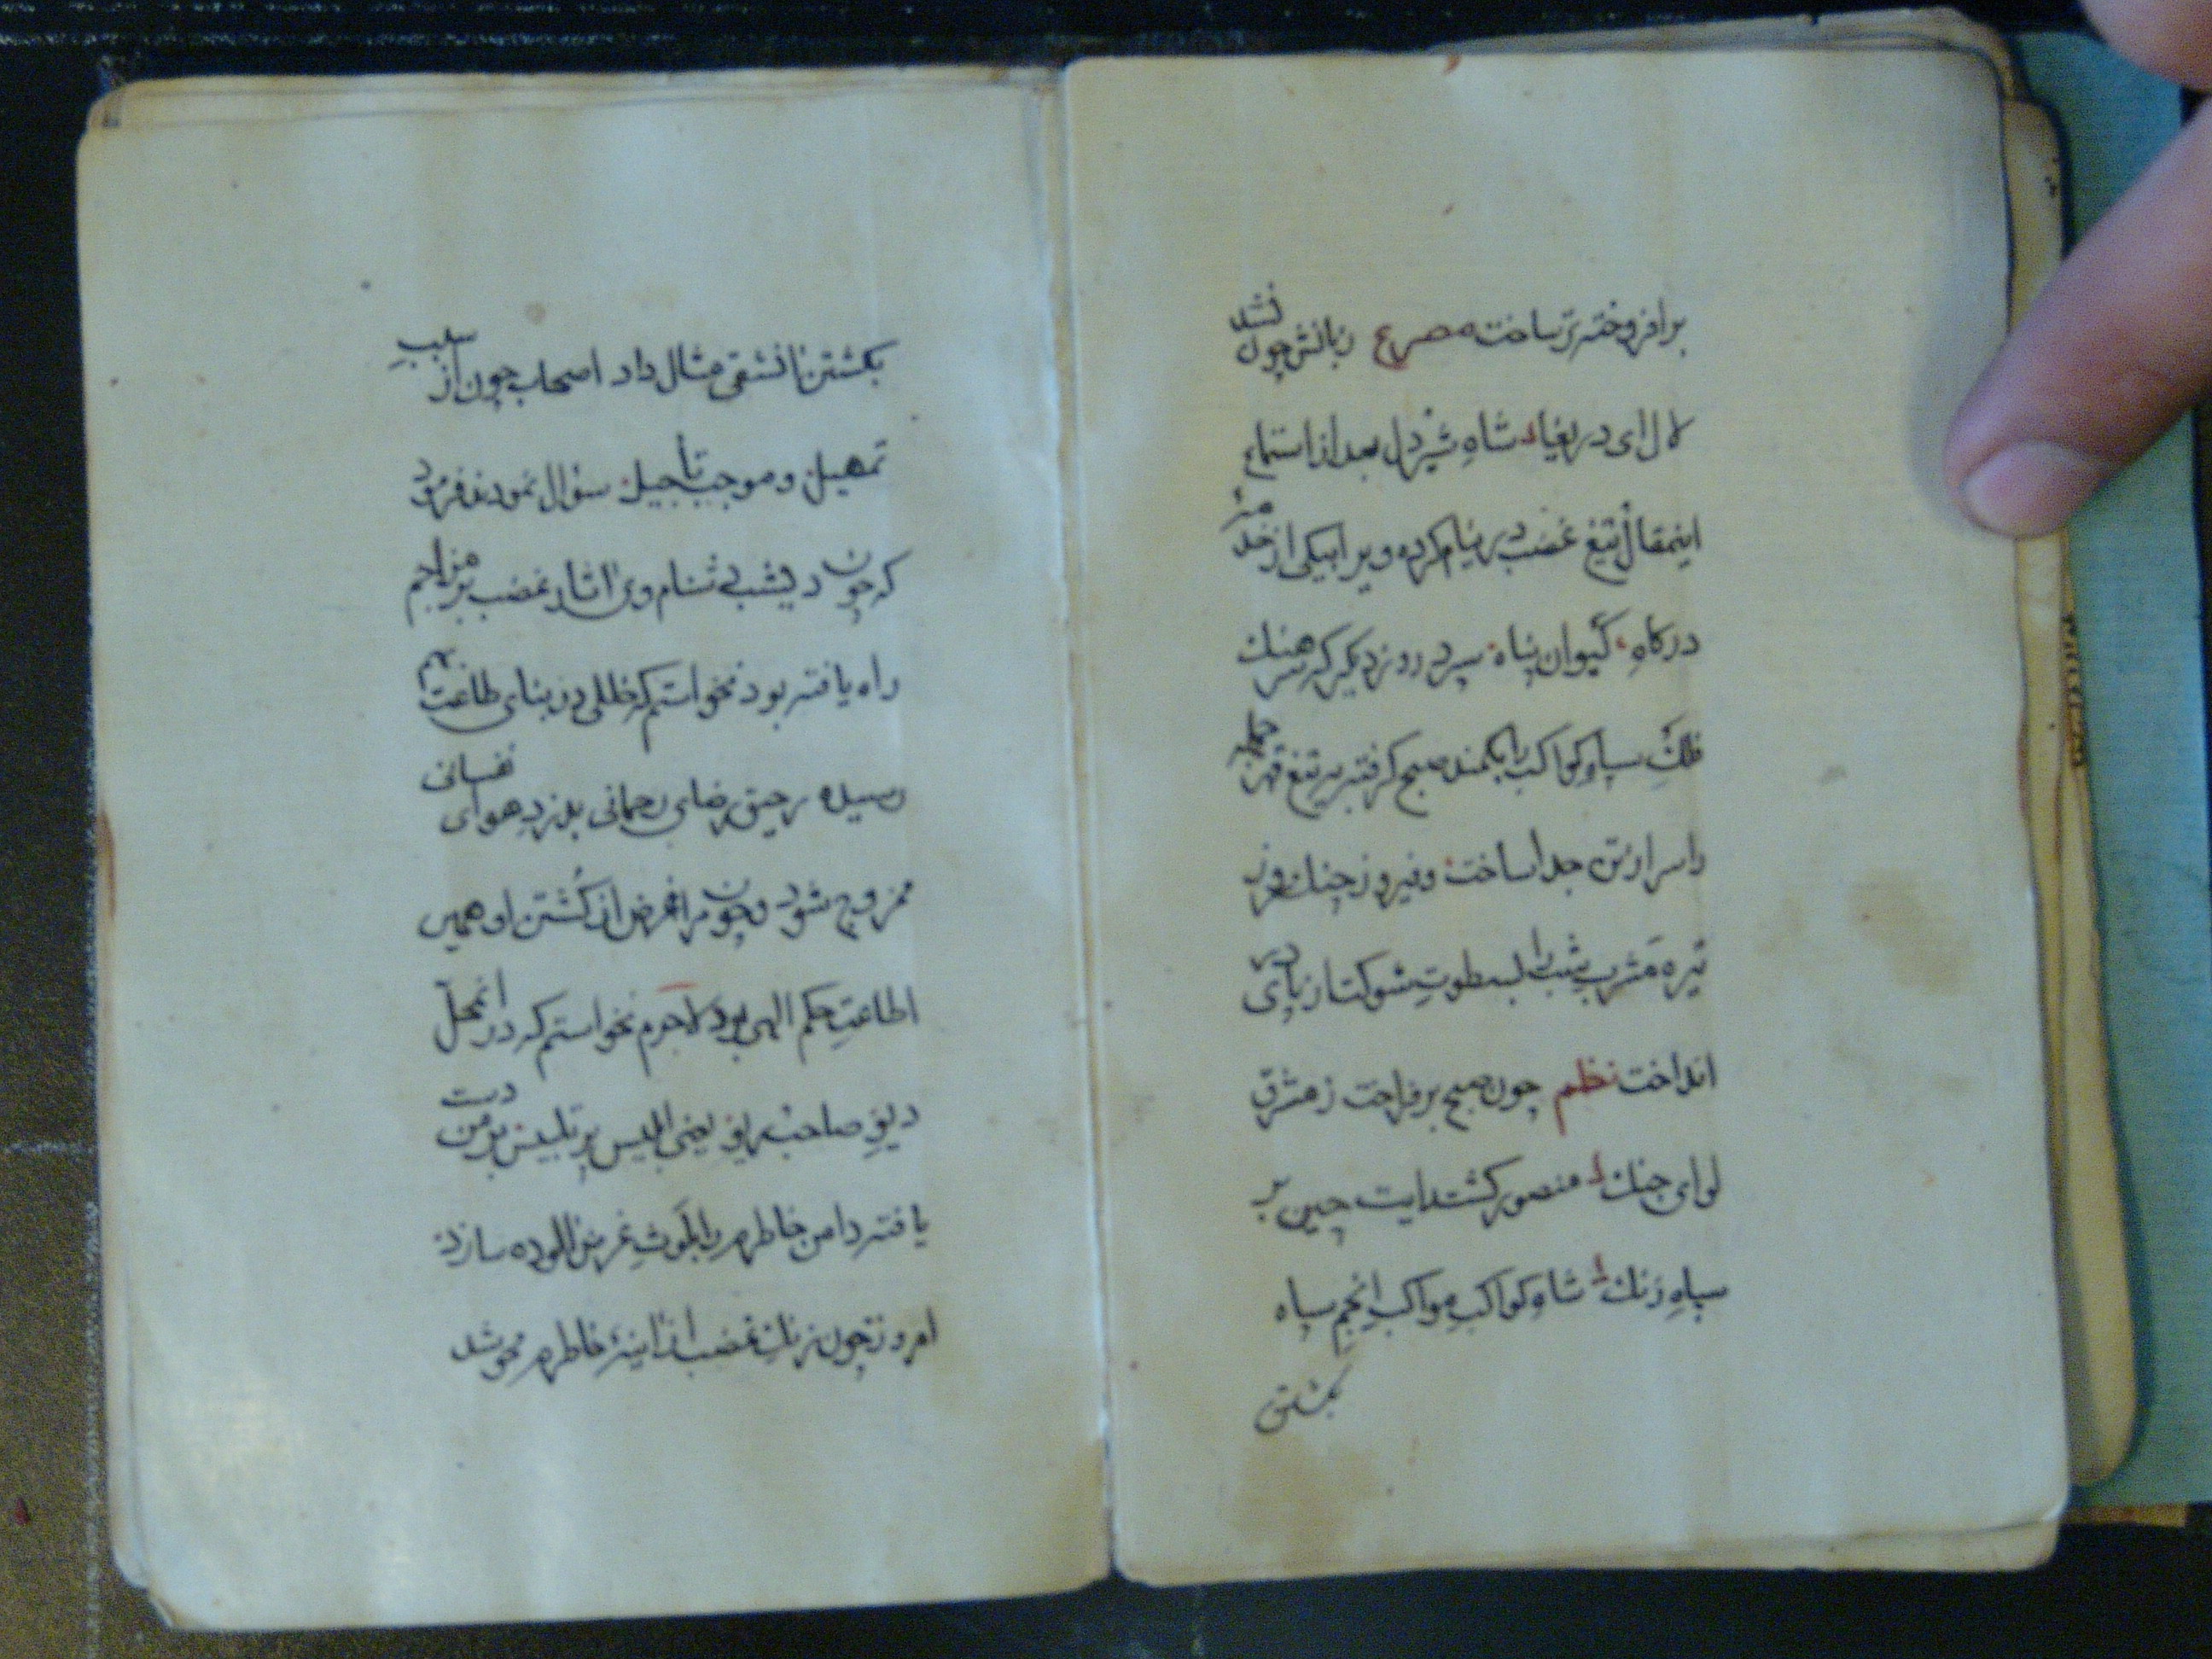 برافروخته تر ساخت مصرع زبانش چون نشد
لال ای دریغا شاه شیردل بعد از استماع
اینمقال تیغ غضب در نیام کرده ویرا بیکی از خدمه
درکاه کیوان پناه سپرد روز دیکر که سرهنك
فلك سپاه کواکب را بکمند صبح کرفته بر تیغ قهر جمله
را سر از تن جدا ساخت و فیروز جنك روز
تیره مشرب شب را بسطوت شوکت از پای در
انداخت نظم چون صبح برفراخت ز مشرق
لوای جنك منصور کشت رایت چین بر
سپاه زنك شاه کواکب مواکب انجم سپاه
بکشتن
بکشتن انشقی مثال داد اصحاب چون از سبب
تمهیل و موجب تاجیل سؤال نمودند فرمود
که چون دیشب بی شنام وی اثار غضب بر مزاجم
راه یافته بود نخواستم که خللی در بنای طاعتم
رسیده رحیق رضای رحمانی بدرد هوای نفسانی
ممزوج شود و چون مرا غرض از کشتن او همین
اطاعت حکم الهی بود لاجرم نخواستم که در انمحل
دیو صاحب ریو یعنی ابلیس پر تلبیس بر من دست
یافته دامن خاطرم را بلوث غرض الوده سازد
امروز چون زنك غضب از اینۀ خاطرم محو شد